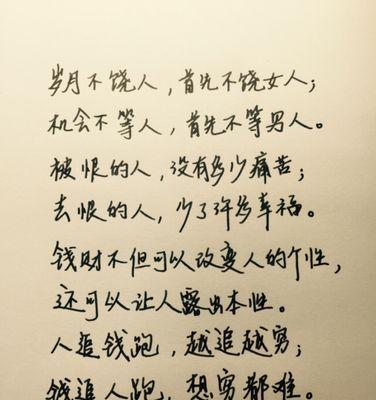 岁月不饶人，首先不饶女人；
机会不等人，首先不等男人。
被恨的人，没有多少痛苦；
去恨的人，少了许多幸福。
钱财不但可以改变人的个性，
还可以让人露出本性。
人追钱跑，越追越穷；
钱追人跑，想穷都难。